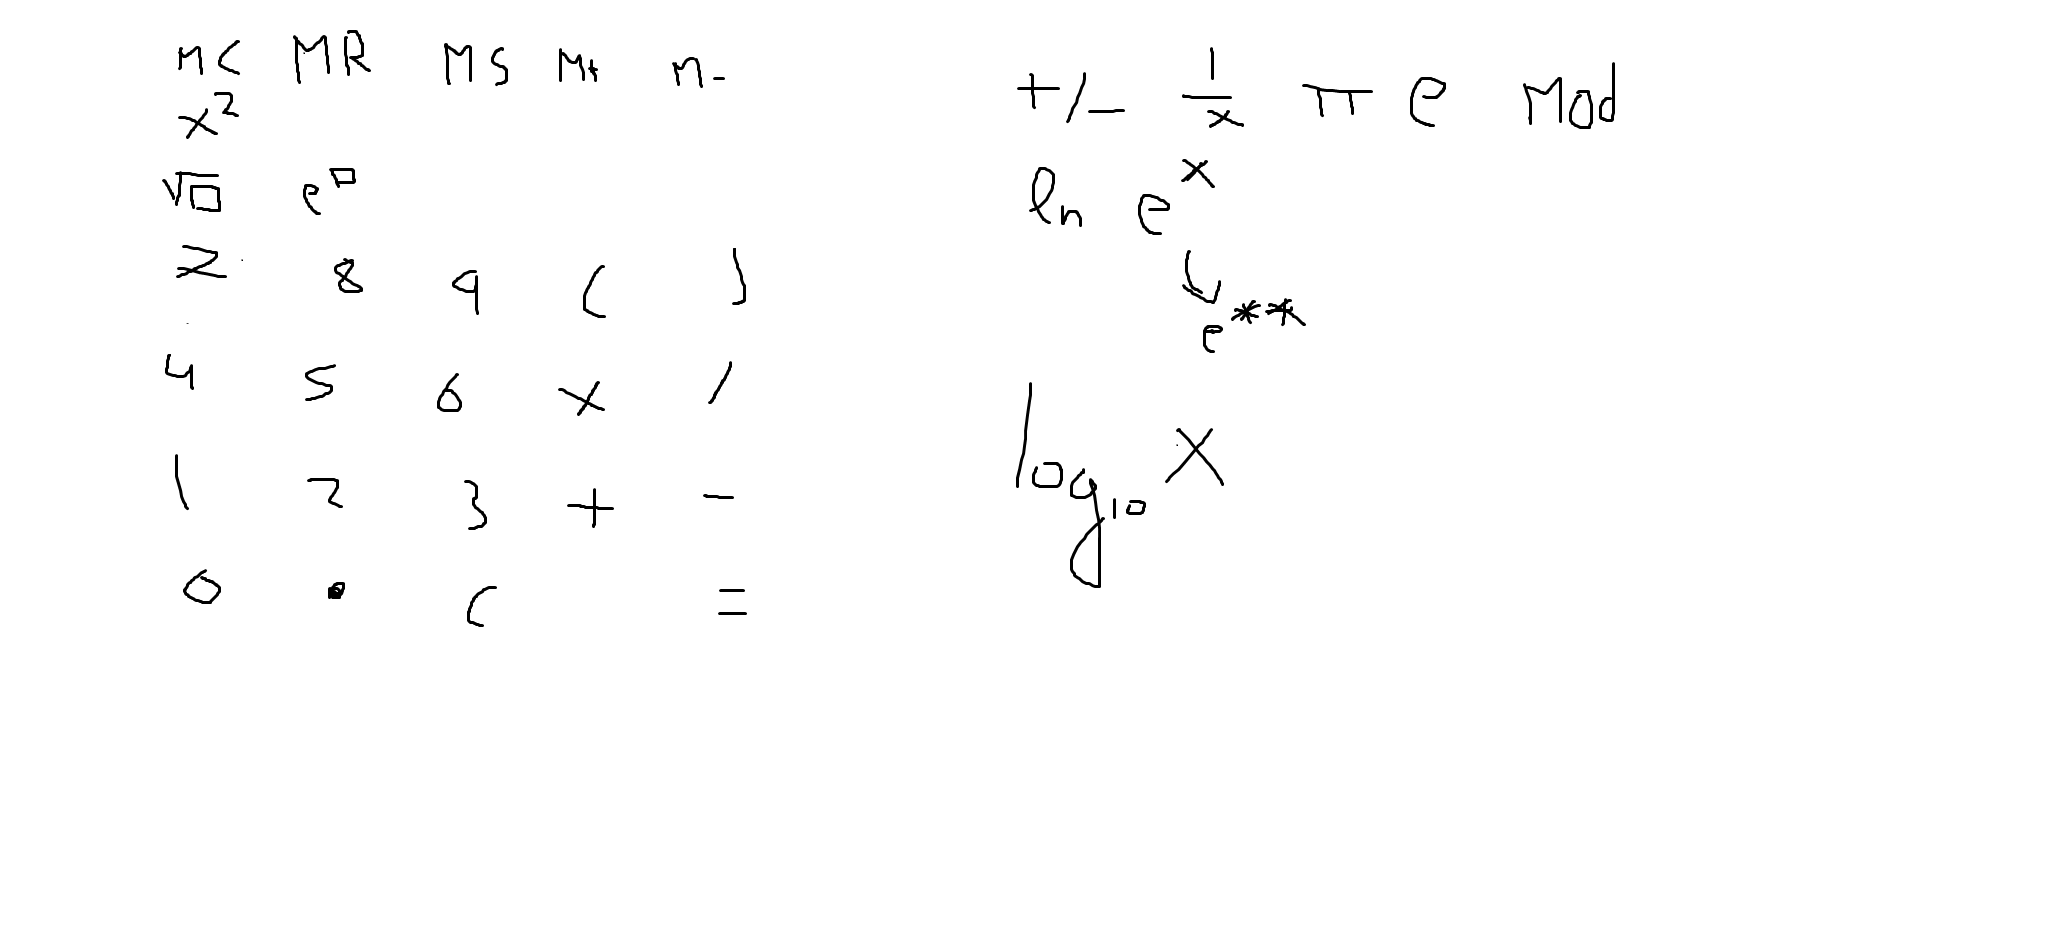 MC MR MS M+ M-
x²
√□ e^□
7 8 9 ( )
4 5 6 × /
1 2 3 + -
0 . C =
+/- 1/x π e Mod
ln e^x
e**
log₁₀ x